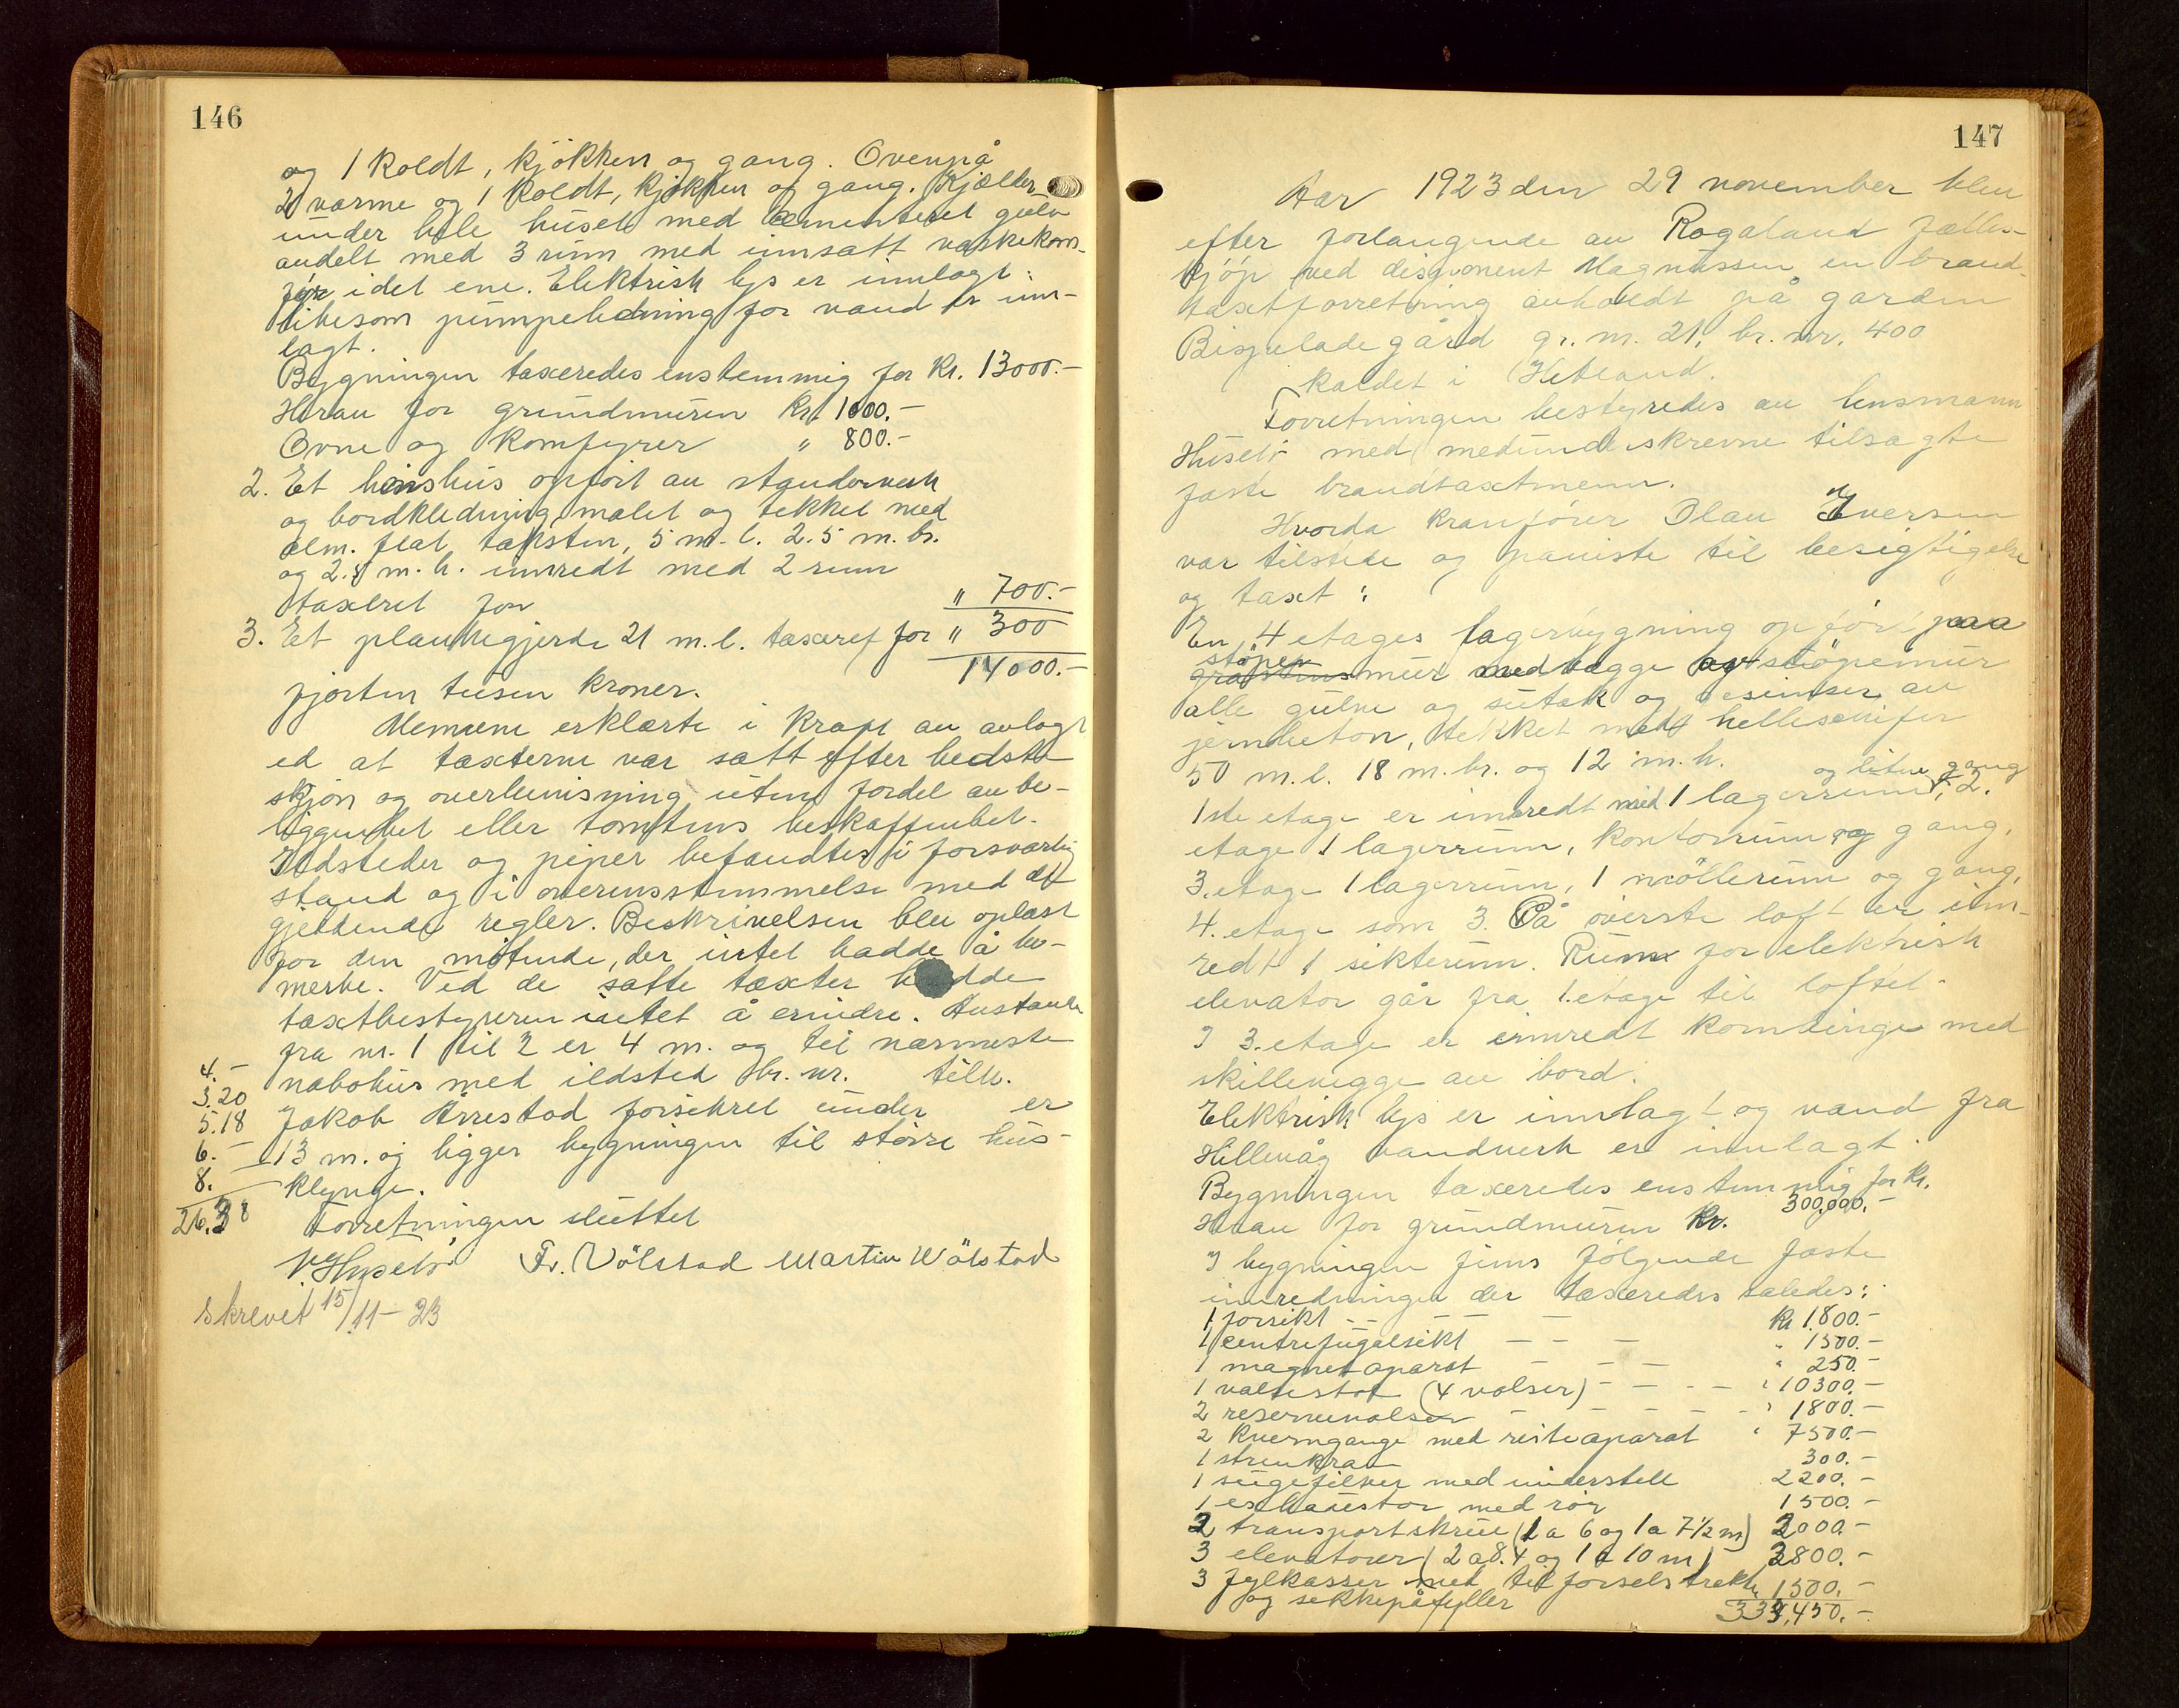 146
og 1 koldt, kjökken og gang. Ovenpå
2 varme og 1 koldt, kjökken og gang. Kjælder
under hele huset med cementeret gulv
avdelt med 3 rum med innsatt vaskekom-
fyr i det ene. Elektrisk lys er innlagt.
likesom pumpeledning for vand er inn-
lagt.
Bygningen taxeredes enstemmig for Kr. 13000.-
Herav for grundmuren Kr. 1000.-
Ovne og komfyrer " 800.-
2. Et hønshus opfört av standerverk
og bordkledning malet og tekket med
alm. flat taksten, 5 m. l. 2.5 m. br.
og 2.5 m. h. innredt med 2 rum
taxeret for " 700.-
3. Et plankegjerde 21 m. l. taxeret for " 300
14000.-
fjorten tusen kroner.
Mennene erklærte i kraft av avlagt
ed at taxterne var satt efter bedste
skjön og overbevisning uten fordel av be-
liggenhet eller tomtens beskaffenhet.
Ildsteder og piper befandtes i forsvarlig
stand og i overensstemmelse med de
gjeldende regler. Beskrivelsen blev oplæst
for den mötende, der intet hadde å be-
merke. Ved de satte taxter hadde
taxtbestyreren intet å erindre. Avstanden
fra nr. 1 til 2 er 4 m. og til nærmeste
nabohus med ildsted br. nr. tilh.
Jakob Årrestad forsikret under er
13 m. og ligger bygningen til större hus-
klynge.
4.-
3.20
5.18
6.-
8.
26.38
Forretningen sluttet
V. Husebö Fr. Völstad Martin Wölstad
Skrevet 15/11-23
147
Aar 1923 den 29 november blev
efter forlangende av Rogaland Fælles-
kjöp ved disponent Magnussen en brand-
taxtforretning avholdt på garden
Bispeladegård gr. nr. 21, br. nr. 400
kaldet i Hetland.
Forretningen bestyredes av lensmann
Husebö med medunderskrevne tilsagte
faste brandtaxtmenn.
Hvorda kranförer Olav Iversen
var tilstede og påviste til besigtigelse
og taxt:
En 4 etages lagerbygning opfört paa
stöpen
gråstens mur med vægge av stöpemur
alle gulve og sutak og gesimser av
jernbeton, tekket med helleskifer
50 m. l. 18 m. br. og 12 m. h.
og liten gang
1ste etage er innredt med 1 lagerrum, 2.
etage 1 lagerrum, kontorrum og gang.
3. etage 1 lagerrum, 1 möllerum og gang.
4. etage som 3. På överste loft er inn-
redt 1 sikterum. Rum for elektrisk
elevator går fra 1. etage til loftet.
I 3. etage er innredt kornbinge med
skillevegge av bord.
Elektrisk lys er innlagt og vand fra
Hillevåg vandverk er innlagt.
Bygningen taxeredes enstemmig for Kr.
300,000.-
Herav for grundmuren Kr.
I bygningen fins fölgende faste
innredninger der taxeredes således:
1 forsikt - - - - Kr 1800.-
1 centrifugalsikt - - - " 1500.-
1 magnetaparat - - - " 250.-
1 valsestol (4 valser) - - - - " 10300.-
2 reservevalser - - - - - " 1800.-
2 kverngange med risteaparat " 7500.-
1 stenkran 300.-
1 sugefilter med understell 2200.-
1 exhaustor med rör 1500.-
2 transportskrue (1 a 6 og 1 a 7 1/2 m) 2000.-
3 elevatorer (2 a 8.4 og 1 a 10 m) 3800.-
3 fylkasser med tilförselstrekk
og sekkepåfyller 1500.-
334,450.-